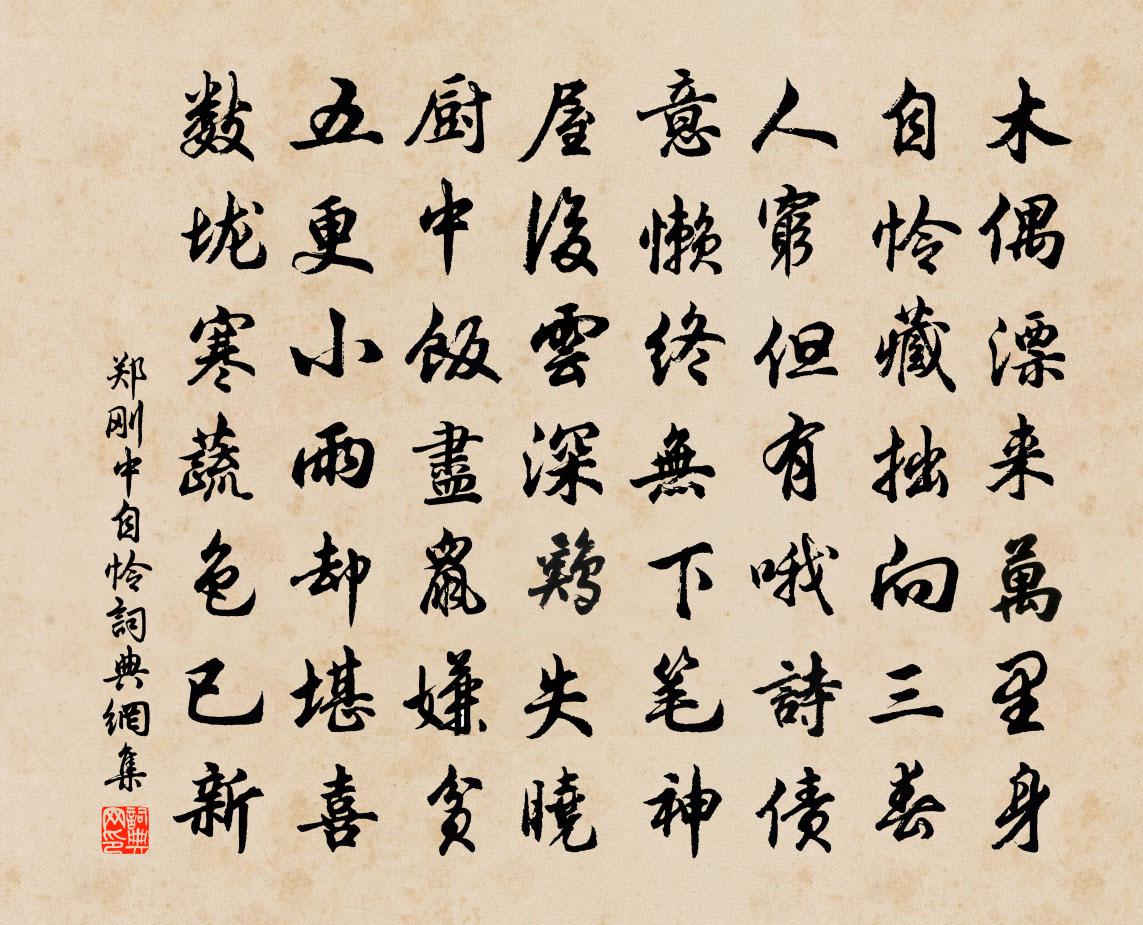 木偶漂来萬里身
自怜藏拙向三春
人窮但有哦詩债
意懒终無下笔神
屋後雲深鷄失曉
厨中飯盡鼠嫌貧
五更小雨却堪喜
数垅寒蔬色已新
郑刚中自怜詞典網集
詞典网印